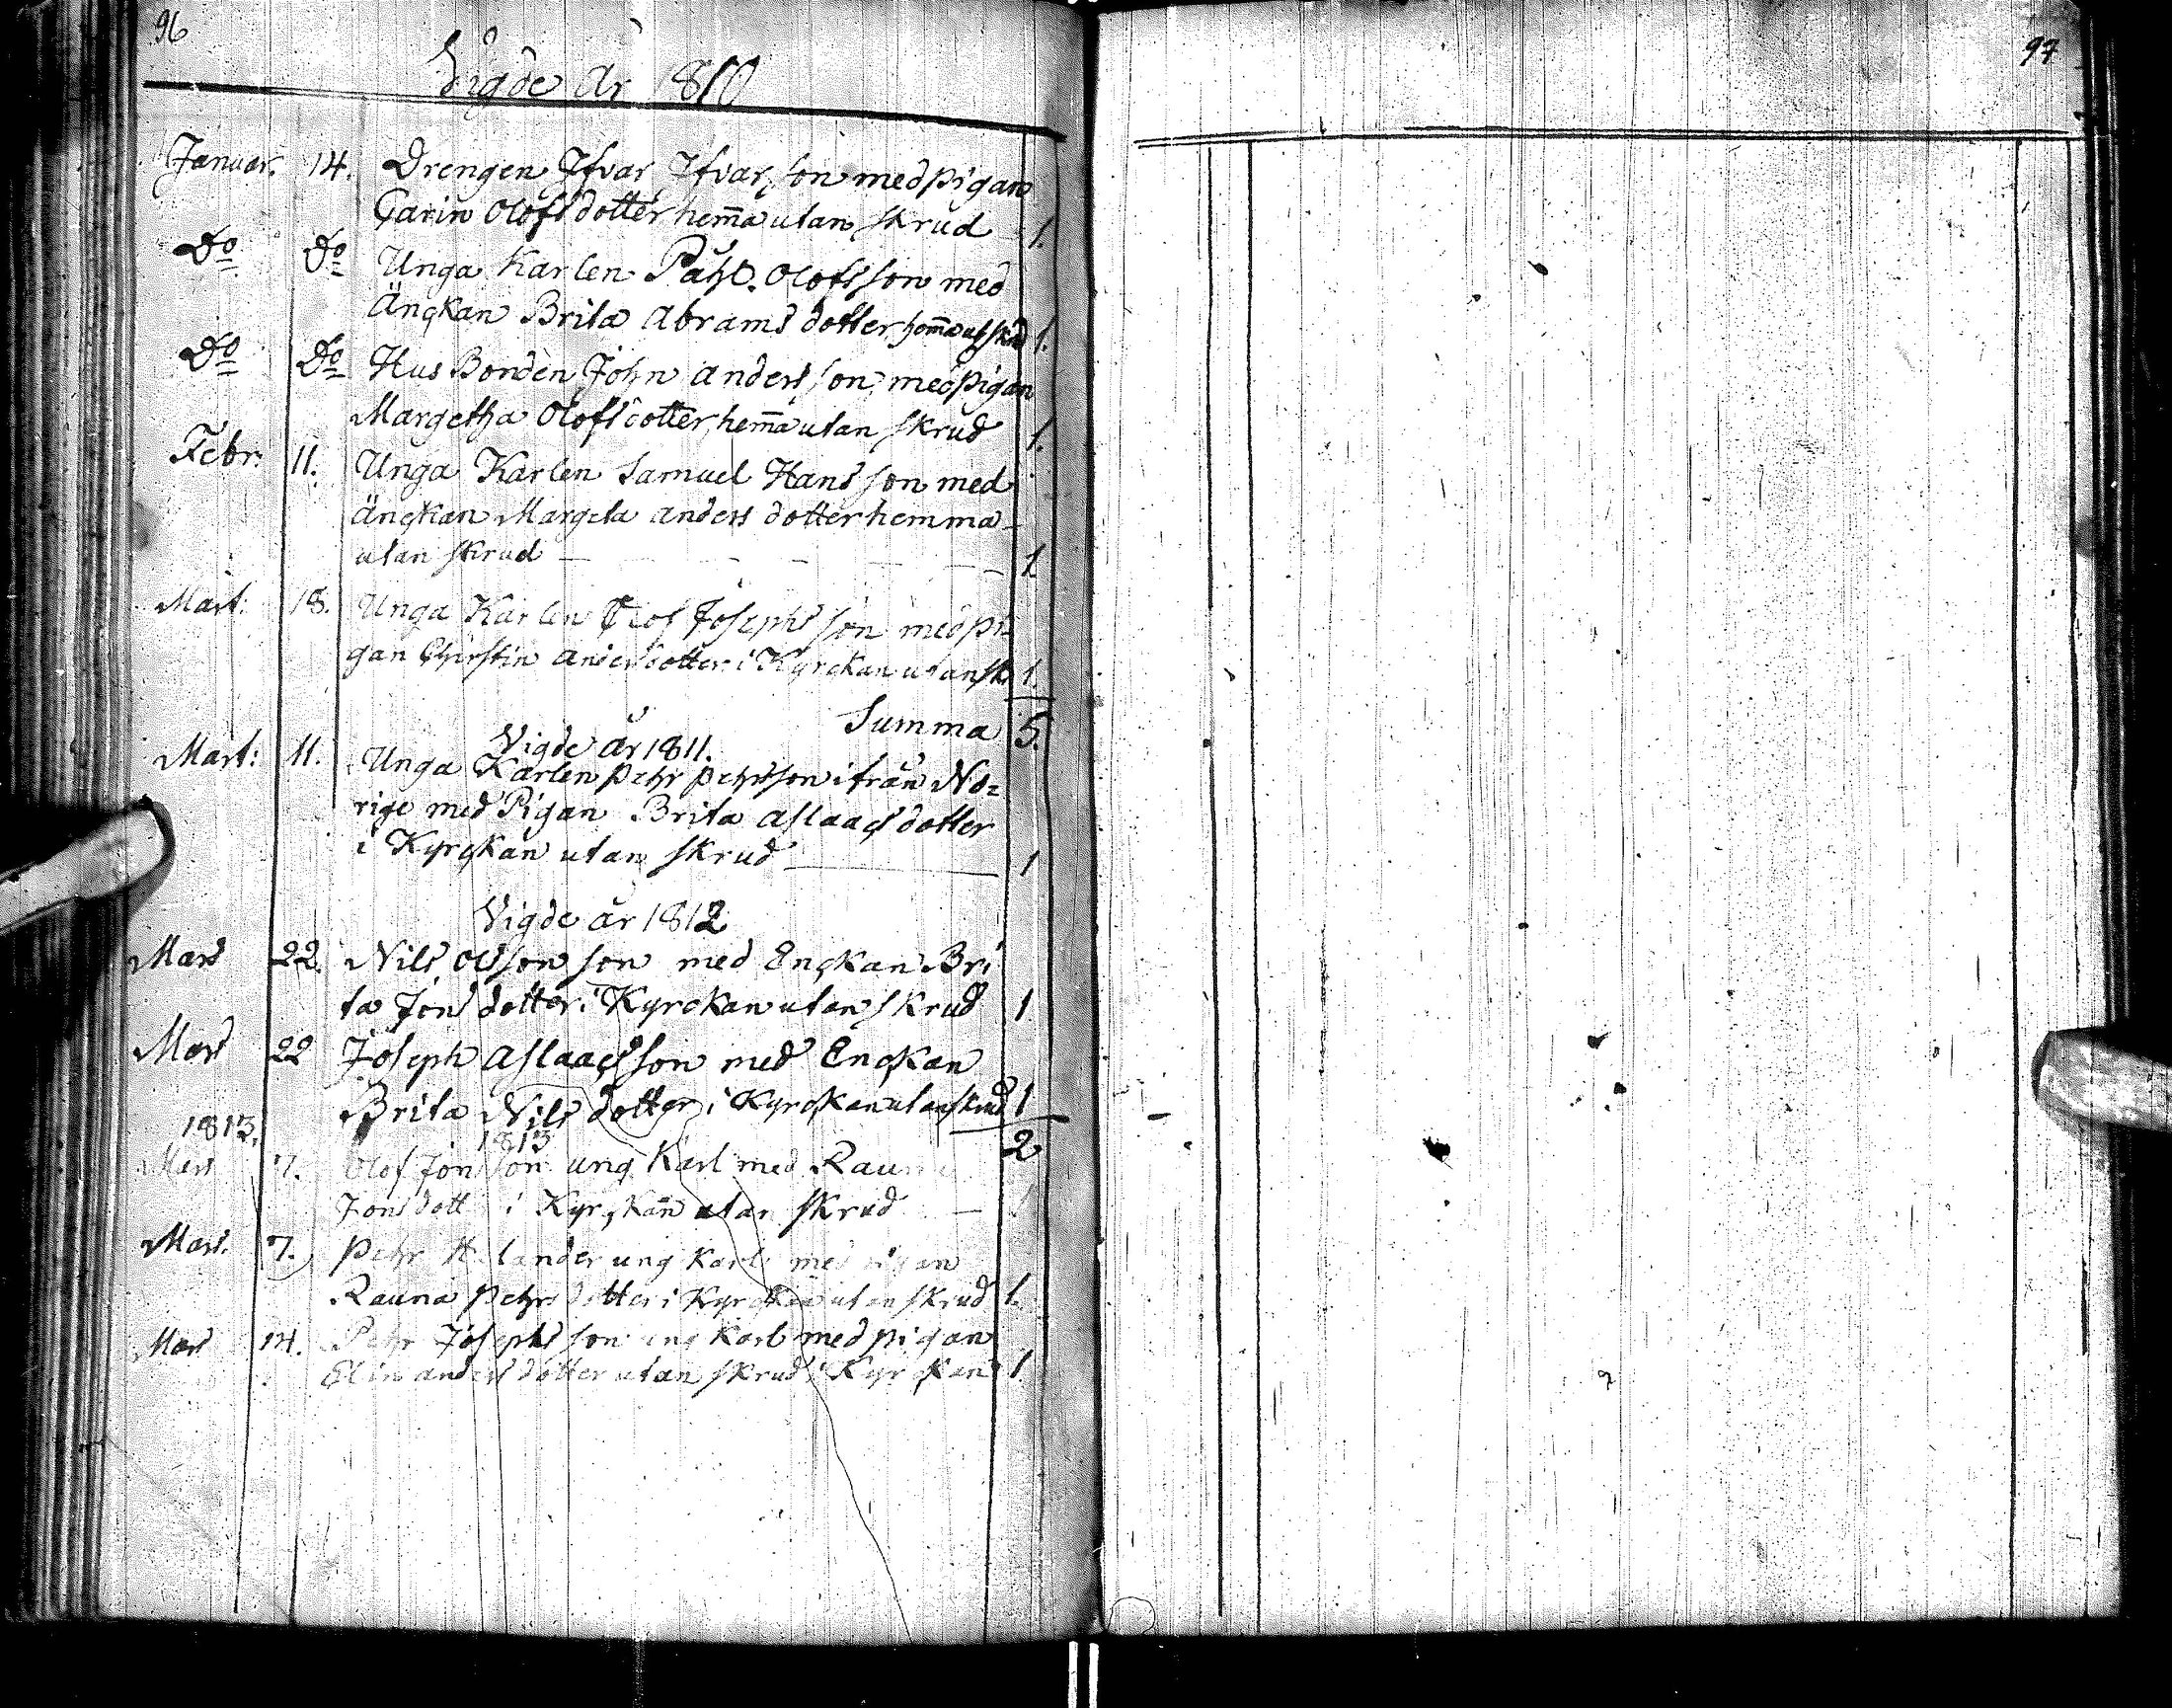 96
Vigde År 1810
Januar. 14. Drengen Ifvar Ifvarsson med pigan
Carin Olofsdotter hem̄a utan skrud 1.
Do Do Unga Karlen Påhl Olofsson med
Änckan Brita Abrams dotter hem̄a 1.
Do Do Hus Bonden John Anders son med pigan
Margetha Olofsdotter hem̄a utan skrud 1.
Febr. 11. Unga Karlen Samuel Hans son med
änckan Margeta Anders dotter hemma
utan skrud — — — — 1
Mart: 18. Unga Karlen Olof Josephs son med pi-
gan Chirstin Andersdotter i Kyrckan utan sk. 1.
Summa 5.
Vigde år 1811.
Mart: 11. Unga Karlen Pehr Pehrsson ifrån No=
rige med Pigan Brita Aslaacs dotter
i Kyrckan utan skrud 1
Vigde år 1812
Mars 22. Nils Olsson son med Enckan Bri
ta Jons dotter i Kyrckan utan skrud 1
Mars 22 Joseph Aslaacsson med Enckan
Brita Nils dotter i Kyrckan utan skrud 1
1813. 1813 2
Mars 7. Olof Jonsson ung Karl med
Jonsdott i Kyrckan utan skrud — 1
Mars. 7. Pehr ung Karl med pigan
Rauna Pehrsdotter i Kyrckan utan skrud 1.
Mars 14. Pehr Josephsson ung Karl med pigan
Elin Anders dotter utan skrud i Kyrckan 1
97